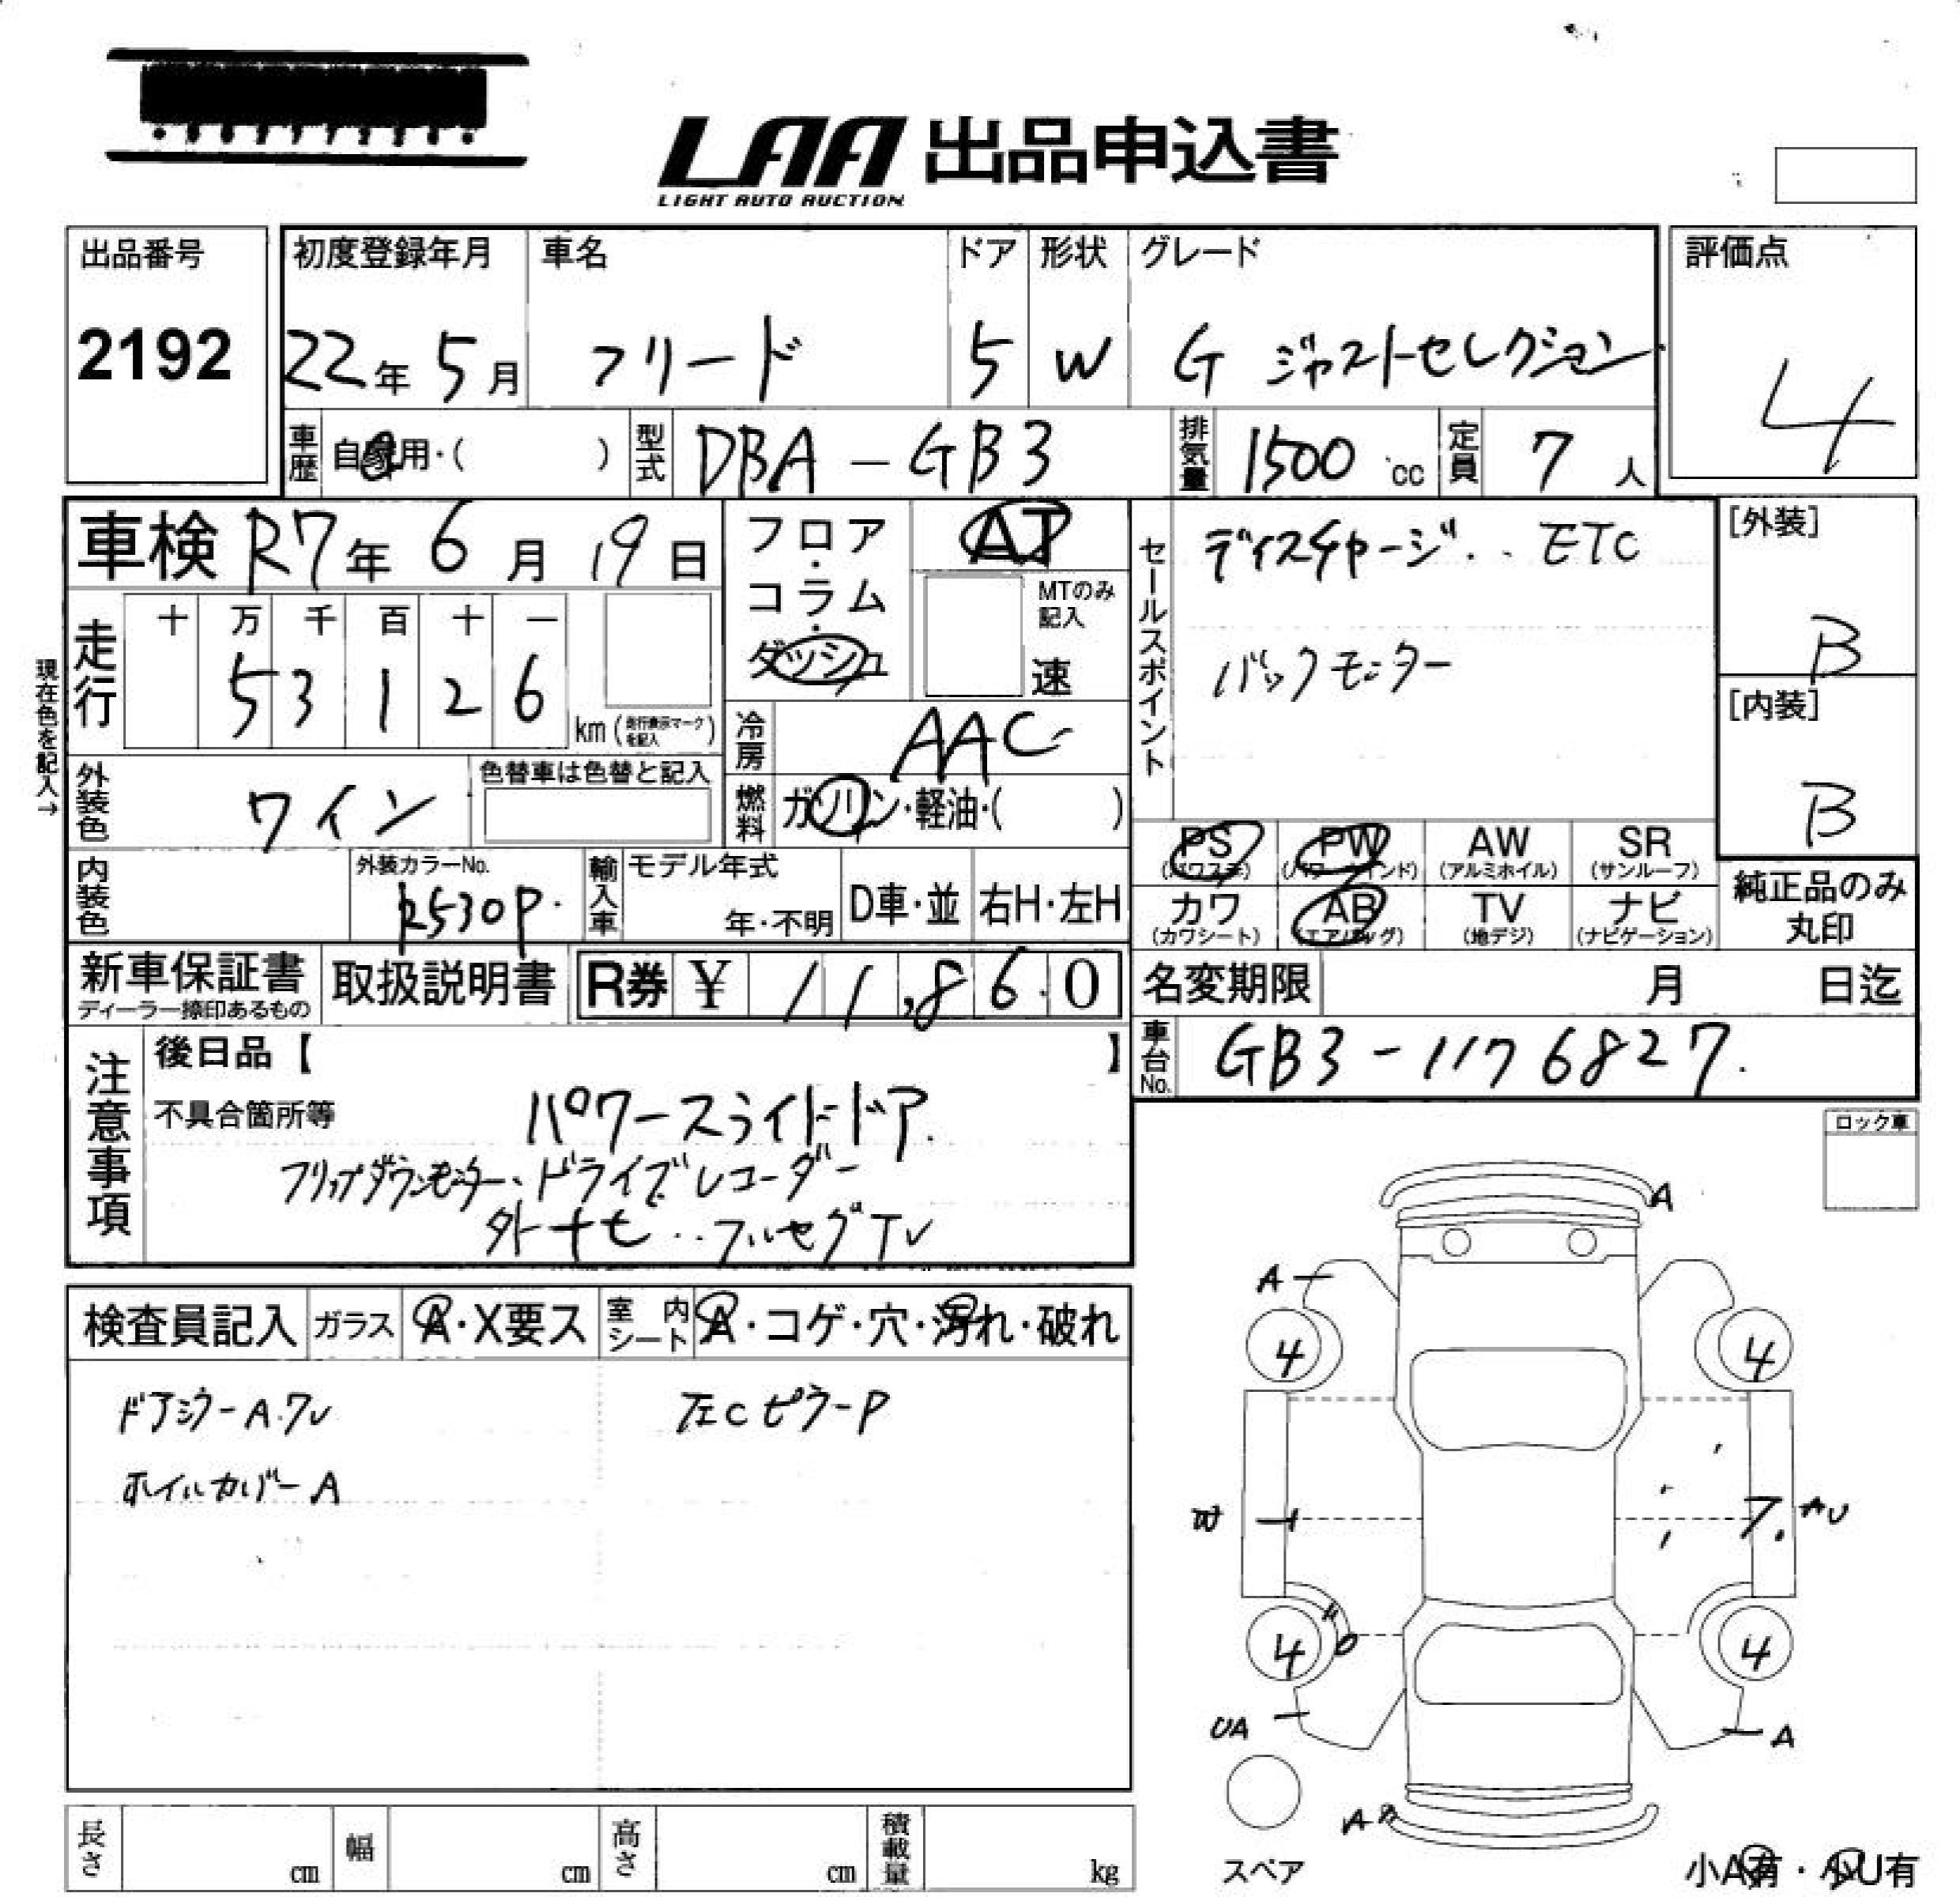 LAA 出品申込書
LIGHT AUTO AUCTION
出品番号
2192
初度登録年月
22年 5月
車名
フリード
ドア
5
形状
W
グレード
G ジャストセレクション
評価点
4
車歴
自家用・( )
型式
DBA-GB3
排気量
1500 cc
定員
7 人
車検 R7年 6月 19日
走行
十 万 千 百 十 一
5 3 1 2 6
km (走行表示マークを記入)
現在色を記入→
フロア・コラム・ダッシュ
AT
MTのみ記入
速
冷房
AAC
燃料
ガソリン・軽油・( )
セールスポイント
ディスチャージ.. ETC
バックモニター
[外装]
B
[内装]
B
外装色
ワイン
色替車は色替と記入
内装色
外装カラーNo.
R530P.
輸入車
モデル年式
年・不明
D車・並
右H・左H
PS
(パワステ)
PW
(パワーウインド)
AW
(アルミホイル)
SR
(サンルーフ)
カワ
(カワシート)
AB
(エアバッグ)
TV
(地デジ)
ナビ
(ナビゲーション)
純正品のみ丸印
新車保証書
ディーラー捺印あるもの
取扱説明書
R券 ¥ 11,860
名変期限 月 日迄
車台No.
GB3-1176827.
注意事項
後日品【 】
不具合箇所等
パワースライドドア.
フリップダウンモニター、ドライブレコーダー
外ナビ..フルセグTV
ロック車
検査員記入
ガラス
A・X要ス
室内シート
A・コゲ・穴・汚れ・破れ
ドアミラーA.ワレ
左CピラーP
ホイルカバーA
A
A
4
4
W
AU
4
4
UA
A
A
スペア
小A有・小U有
長さ cm
幅 cm
高さ cm
積載量 kg